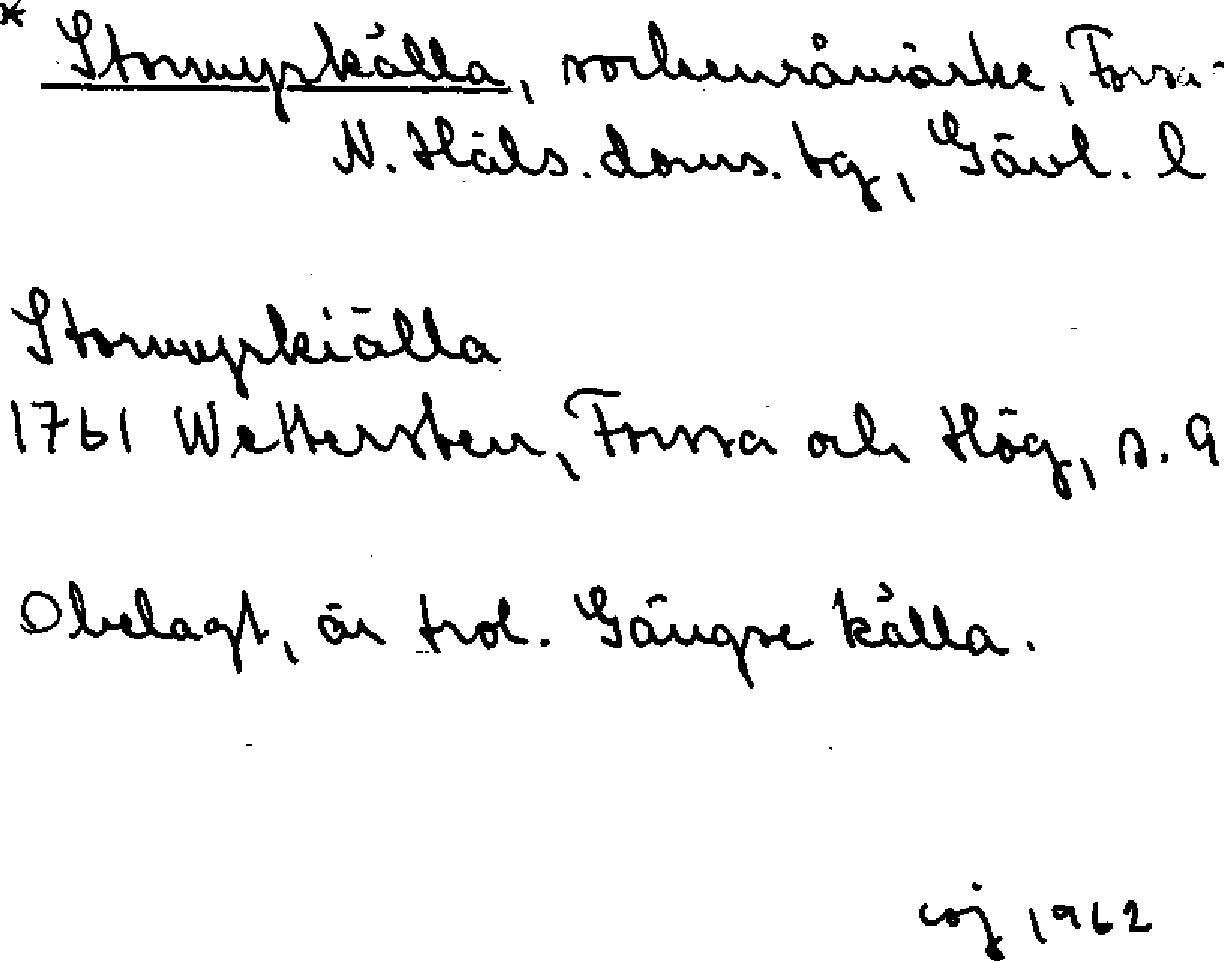 * Stormyrkälla, sockenråmärke, Forsa
N. Häls. doms. tg, Gävl. l
Stormyrkiälla
1761 Wettersten, Forssa och Hög, s. 9
Obelagt, är trol. Gängse källa.
coj 1962